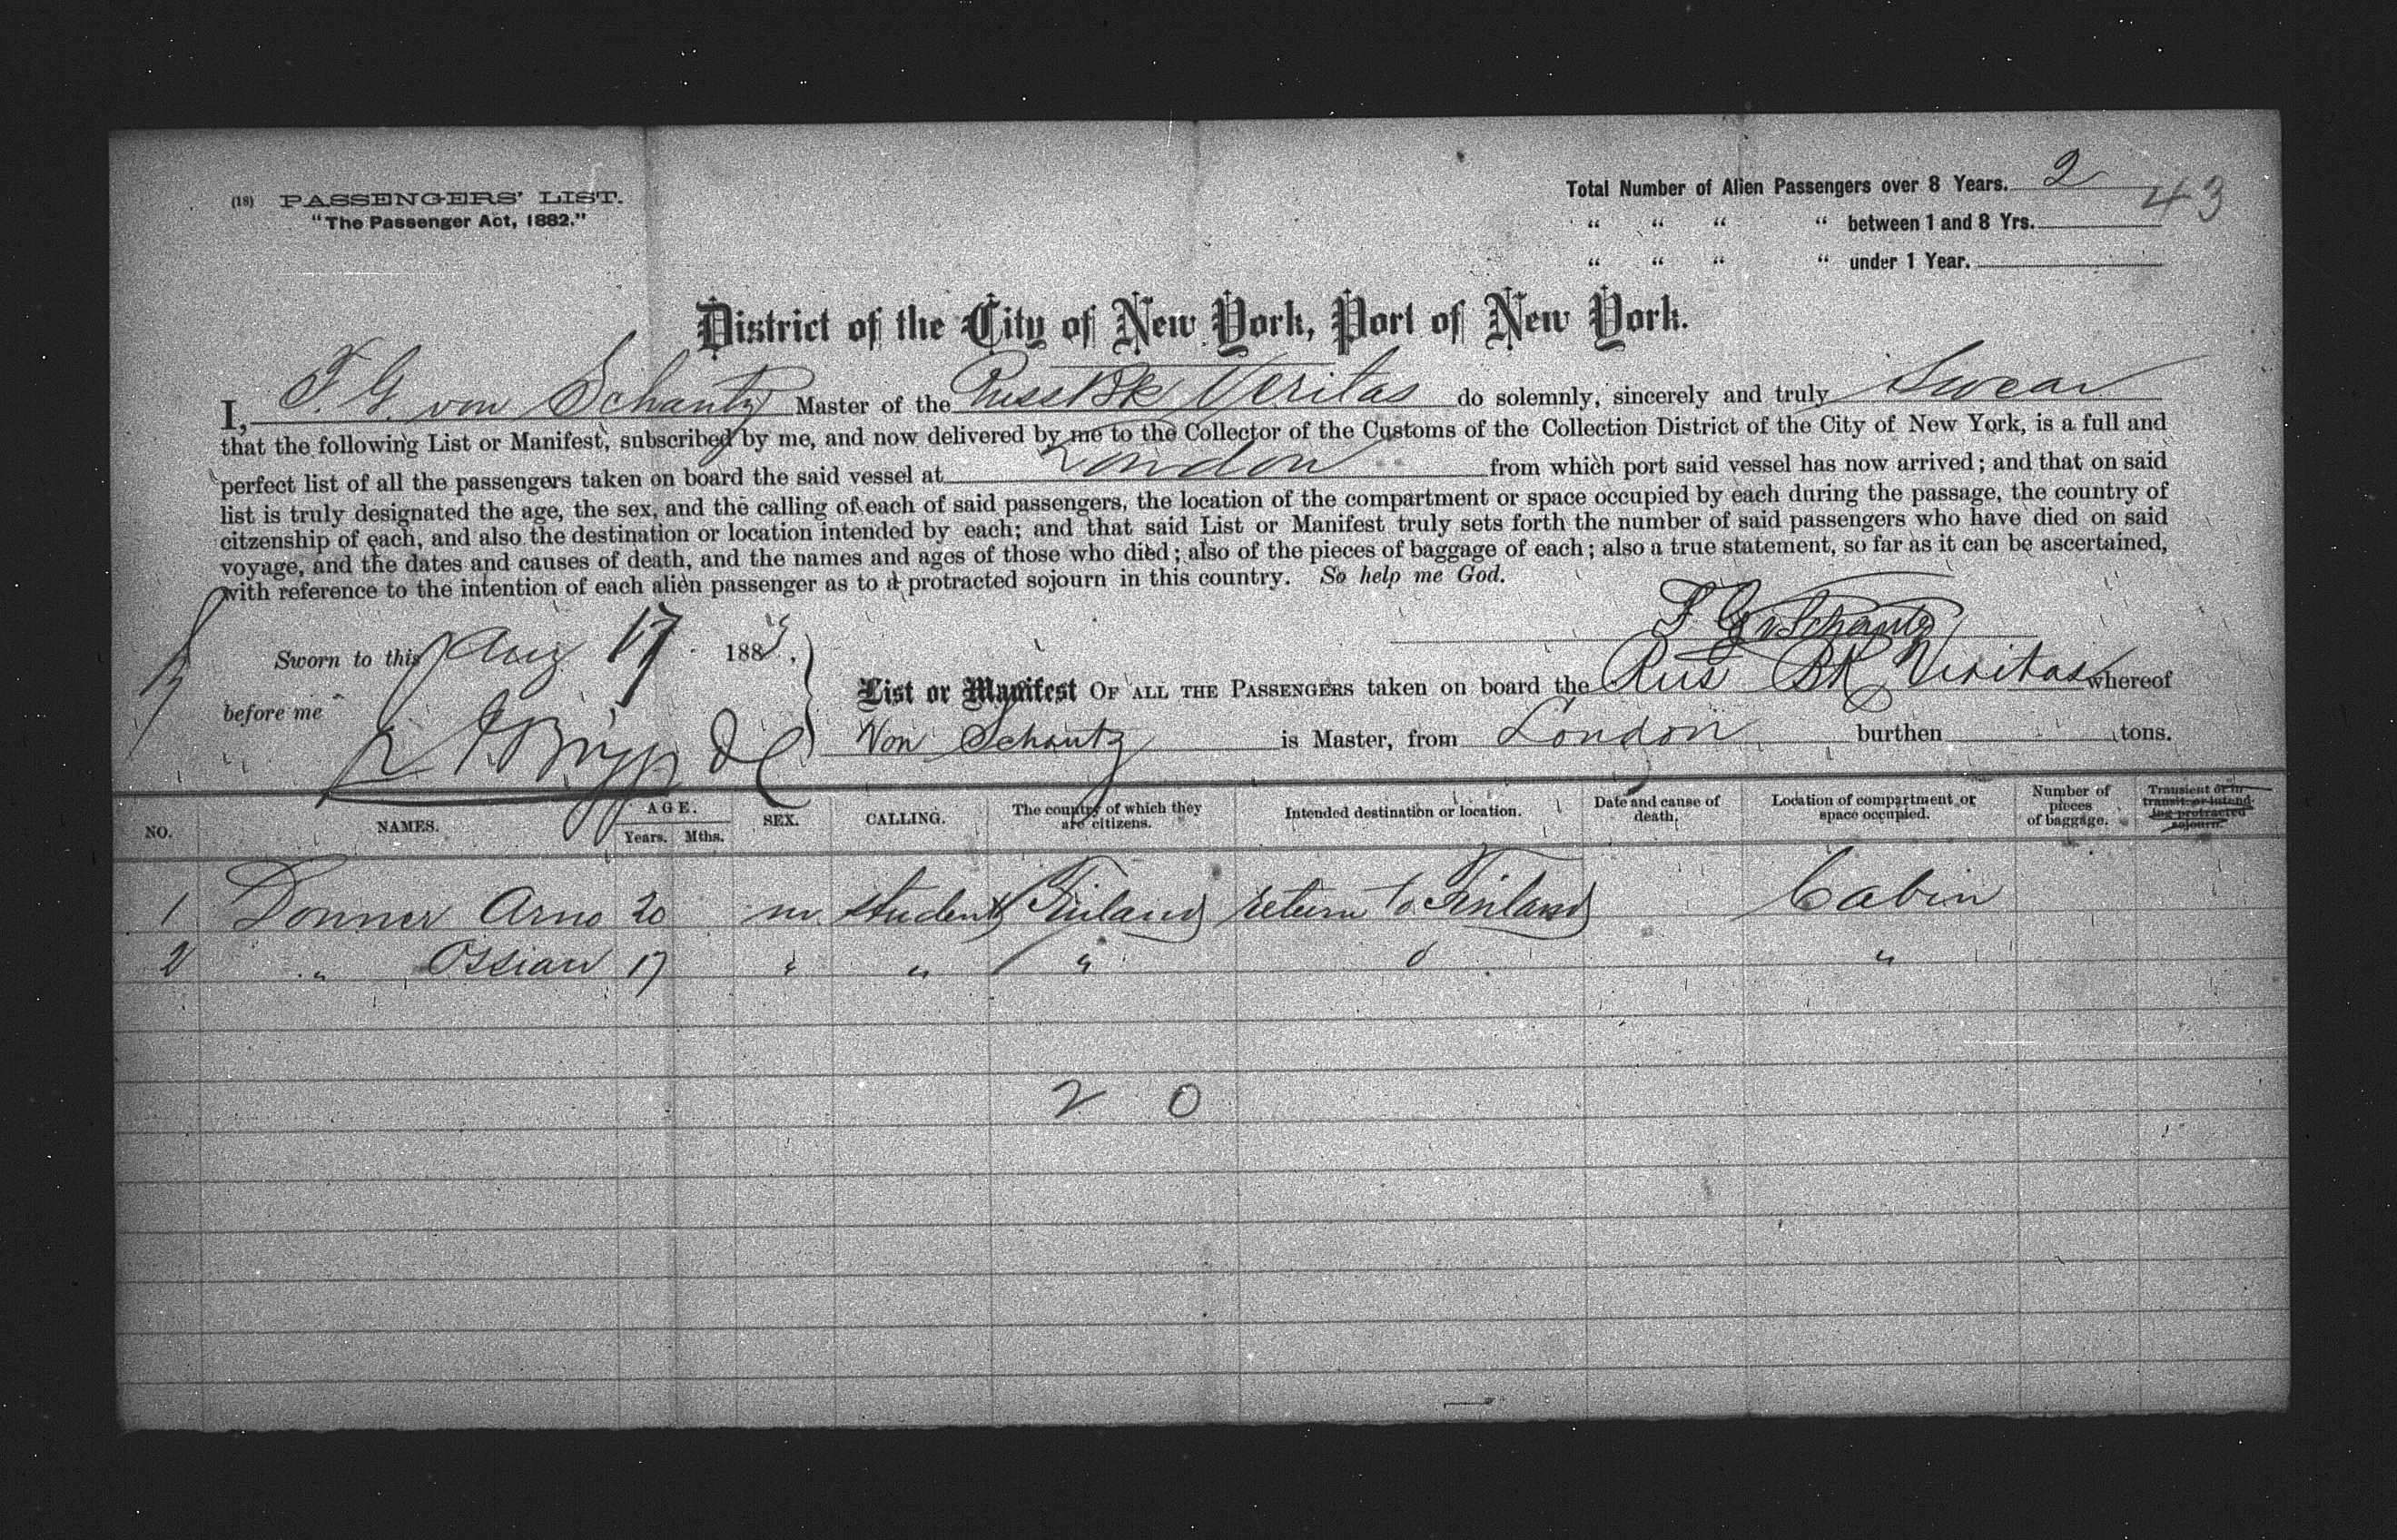 (18) PASSENGERS' LIST.
"The Passenger Act, 1882."
Total Number of Alien Passengers over 8 Years. 2
43
" " " " between 1 and 8 Yrs.
" " " " under 1 Year.
District of the City of New York, Port of New York.
I, F. G. von Schantz Master of the Russ Bk Veritas do solemnly, sincerely and truly Swear
that the following List or Manifest, subscribed by me, and now delivered by me to the Collector of the Customs of the Collection District of the City of New York, is a full and
perfect list of all the passengers taken on board the said vessel at London from which port said vessel has now arrived; and that on said
list is truly designated the age, the sex, and the calling of each of said passengers, the location of the compartment or space occupied by each during the passage, the country of
citzenship of each, and also the destination or location intended by each; and that said List or Manifest truly sets forth the number of said passengers who have died on said
voyage, and the dates and causes of death, and the names and ages of those who died; also of the pieces of baggage of each; also a true statement, so far as it can be ascertained,
with reference to the intention of each alien passenger as to a protracted sojourn in this country. So help me God.
F G v Schantz
Sworn to this Aug 17 188
before me
List or Manifest OF ALL THE PASSENGERS taken on board the Rus BK Veritas whereof
Von Schantz is Master, from London burthen tons.
NO. NAMES. AGE. Years. Mths. SEX. CALLING. The country of which they are citizens. Intended destination or location. Date and cause of death. Location of compartment or space occupied. Number of pieces of baggage. Transient or in transit or intending protracted sojourn.
1 Donner Arno 20 m student Finland return to Finland Cabin
2 " Ossian 17 " " " "
2 0